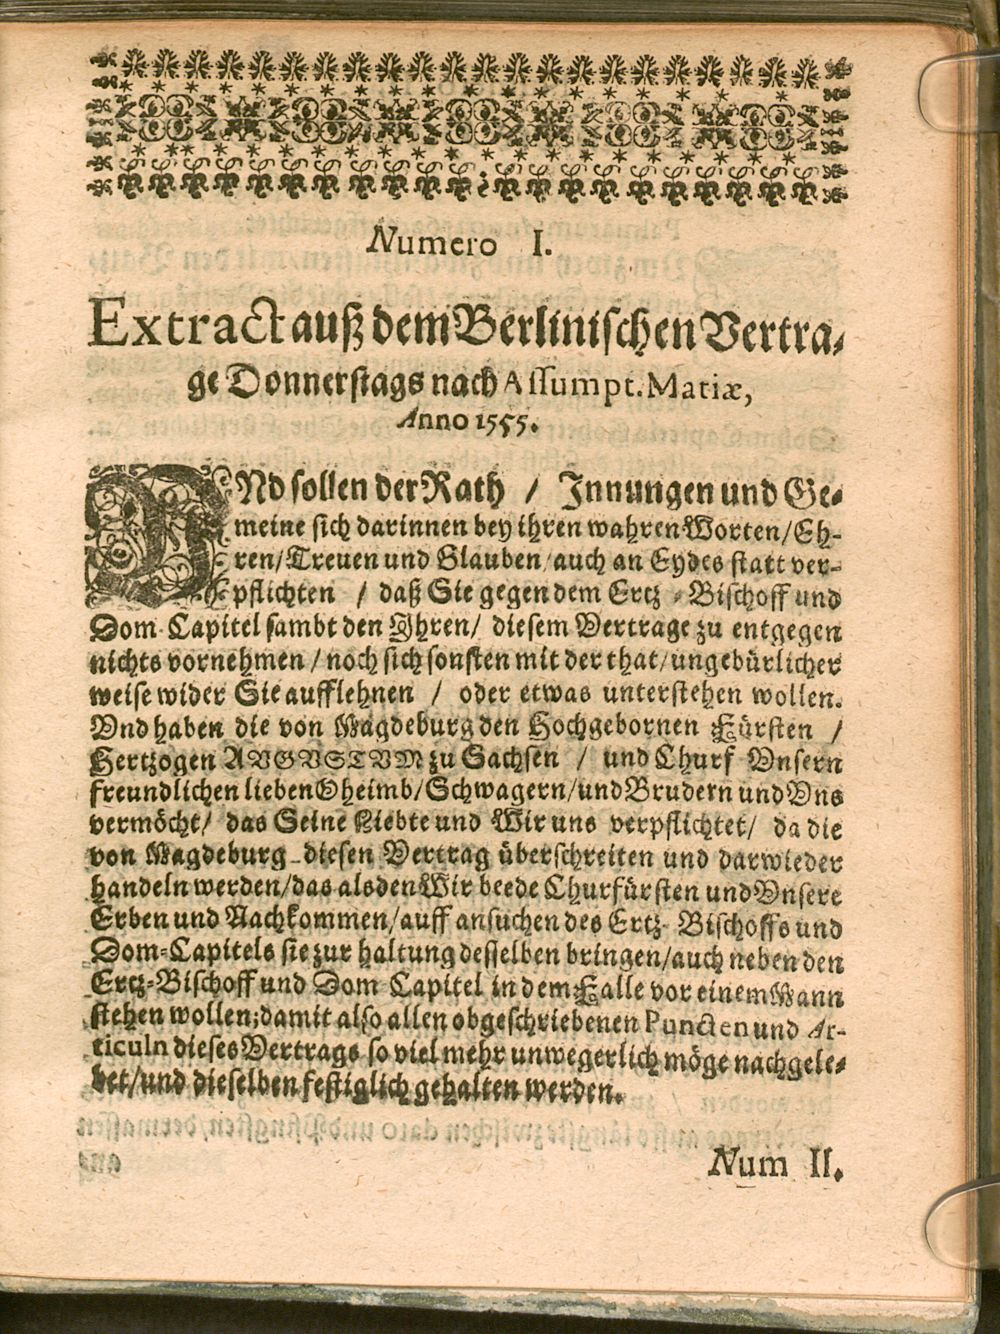 Numero I.
Extract auß dem Berlinischen Vertra-
ge Donnerstags nach Assumpt. Mariæ,
Anno 1555.
VNd sollen der Rath / Innungen und Ge-
meine sich darinnen bey ihren wahren Worten/Eh-
ren/Treuen und Glauben/auch an Eydes statt ver-
pflichten / daß Sie gegen dem Ertz-Bischoff und
Dom-Capitel sambt den Ihren/ diesem Vertrage zu entgegen
nichts vornehmen/noch sich sonsten mit der that/ungebürlicher
weise wider Sie aufflehnen / oder etwas unterstehen wollen.
Vnd haben die von Magdeburg den Hochgebornen Fürsten /
Hertzogen AVGVSTVM zu Sachsen / und Churf Vnsern
freundlichen lieben Oheimb/Schwagern/und Brudern und Vns
vermöcht/ das Seine Liebte und Wir uns verpflichtet/ da die
von Magdeburg diesen Vertrag überschreiten und darwieder
handeln werden/das alsden Wir beede Churfürsten und Vnsere
Erben und Nachkommen/auff ansuchen des Ertz-Bischoffs und
Dom-Capitels sie zur haltung desselben bringen/auch neben den
Ertz-Bischoff und Dom Capitel in dem Falle vor einem Mann
stehen wollen; damit also allen obgeschriebenen Puncten und Ar-
ticuln dieses Vertrags so viel mehr unwegerlich möge nachgele-
bet/und dieselben festiglich gehalten werden.
Num II.